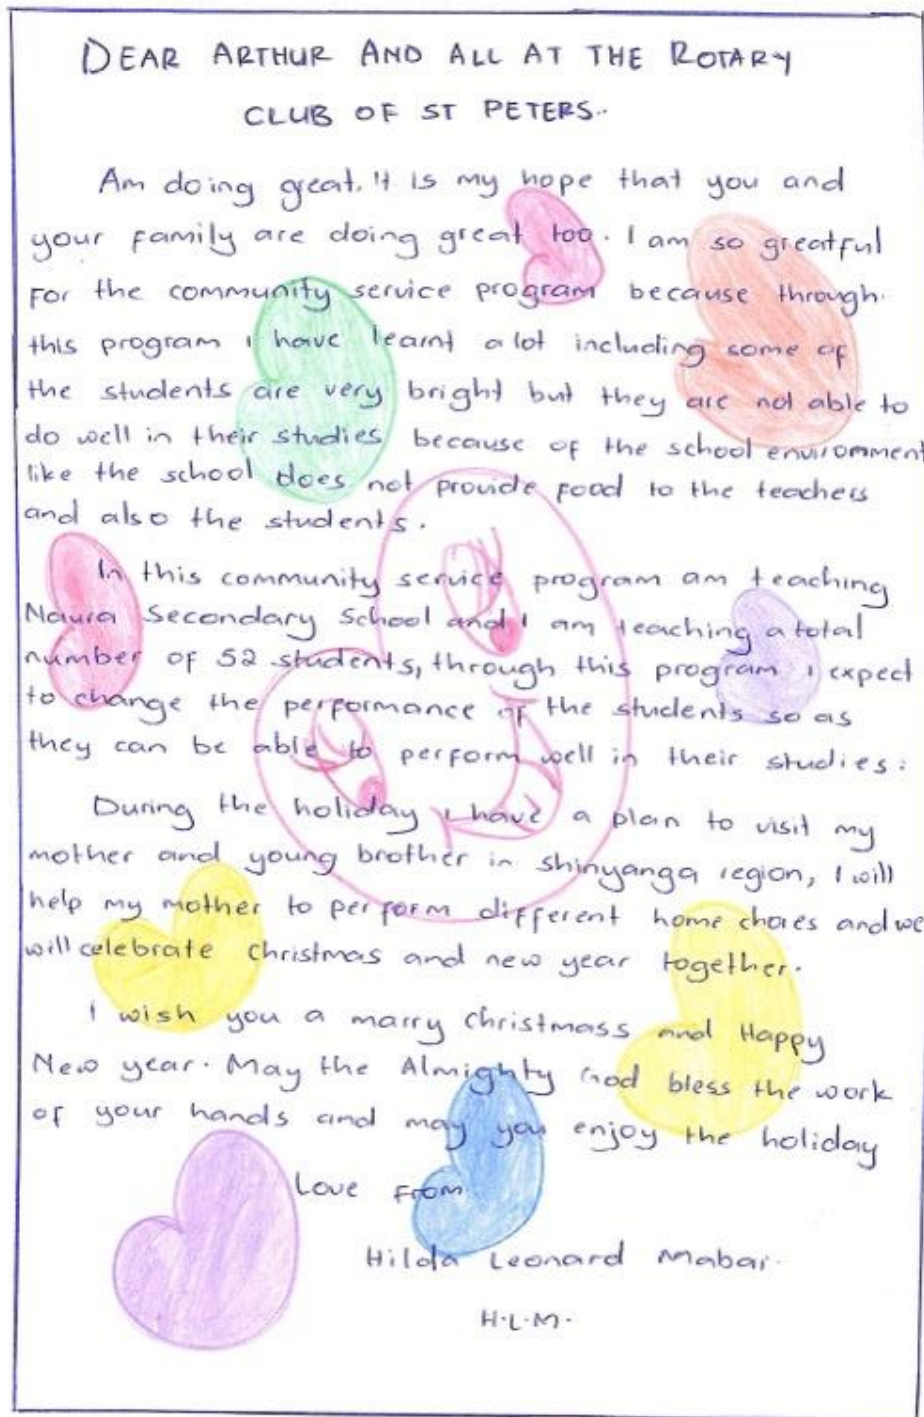 DEAR ARTHUR AND ALL AT THE ROTARY
CLUB OF ST PETERS..
Am doing great. It is my hope that you and
your family are doing great too. I am so greatful
For the community service program because through.
this program I have learnt alot including some of
the students are very bright but they are not able to
do well in their studies because of the school environment
like the school does not provide food to the teachers
and also the students.
In this community service program am teaching
Naura Secondary School and I am teaching a total
number of 52 students, through this program I expect
to change the performance of the students so as
they can be able to perform well in their studies.
During the holiday I have a plan to visit my
mother and young brother in shinyanga region, I will
help my mother to perform different home chores and we
will celebrate Christmas and new year together.
I wish you a marry christmass and Happy
New year. May the Almighty God bless the work
of your hands and may you enjoy the holiday
Love From
Hilda Leonard Mabai.
H.L.M.